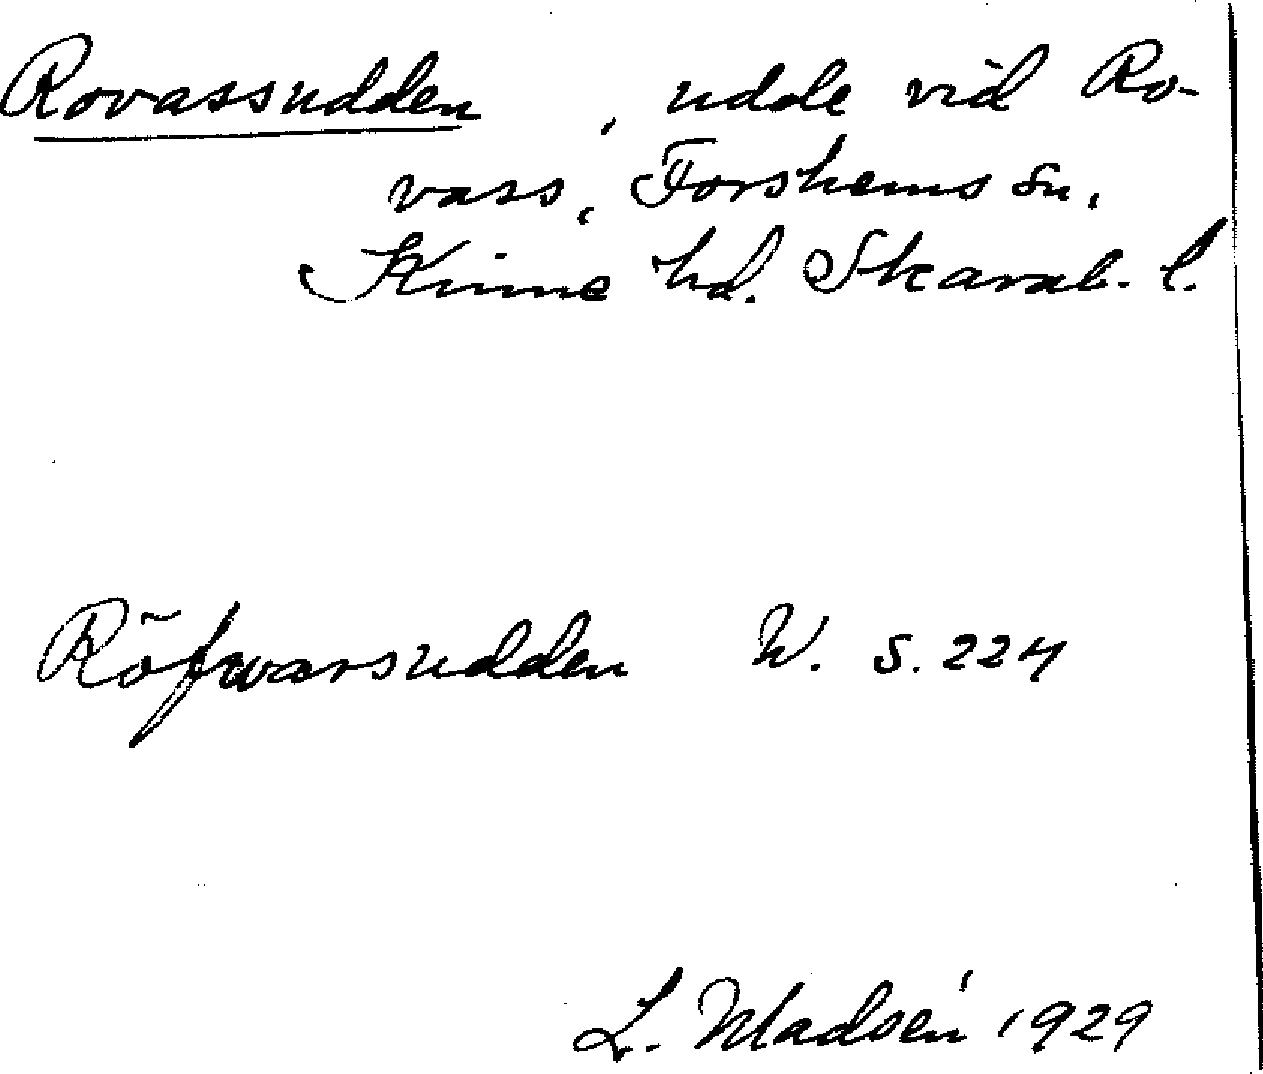 Rovassudden , udde vid Ro-
vass, Forshems sn,
Kinne hd. Skarab. l.
Röfwarsudden W. s. 224
L. Madsén 1929